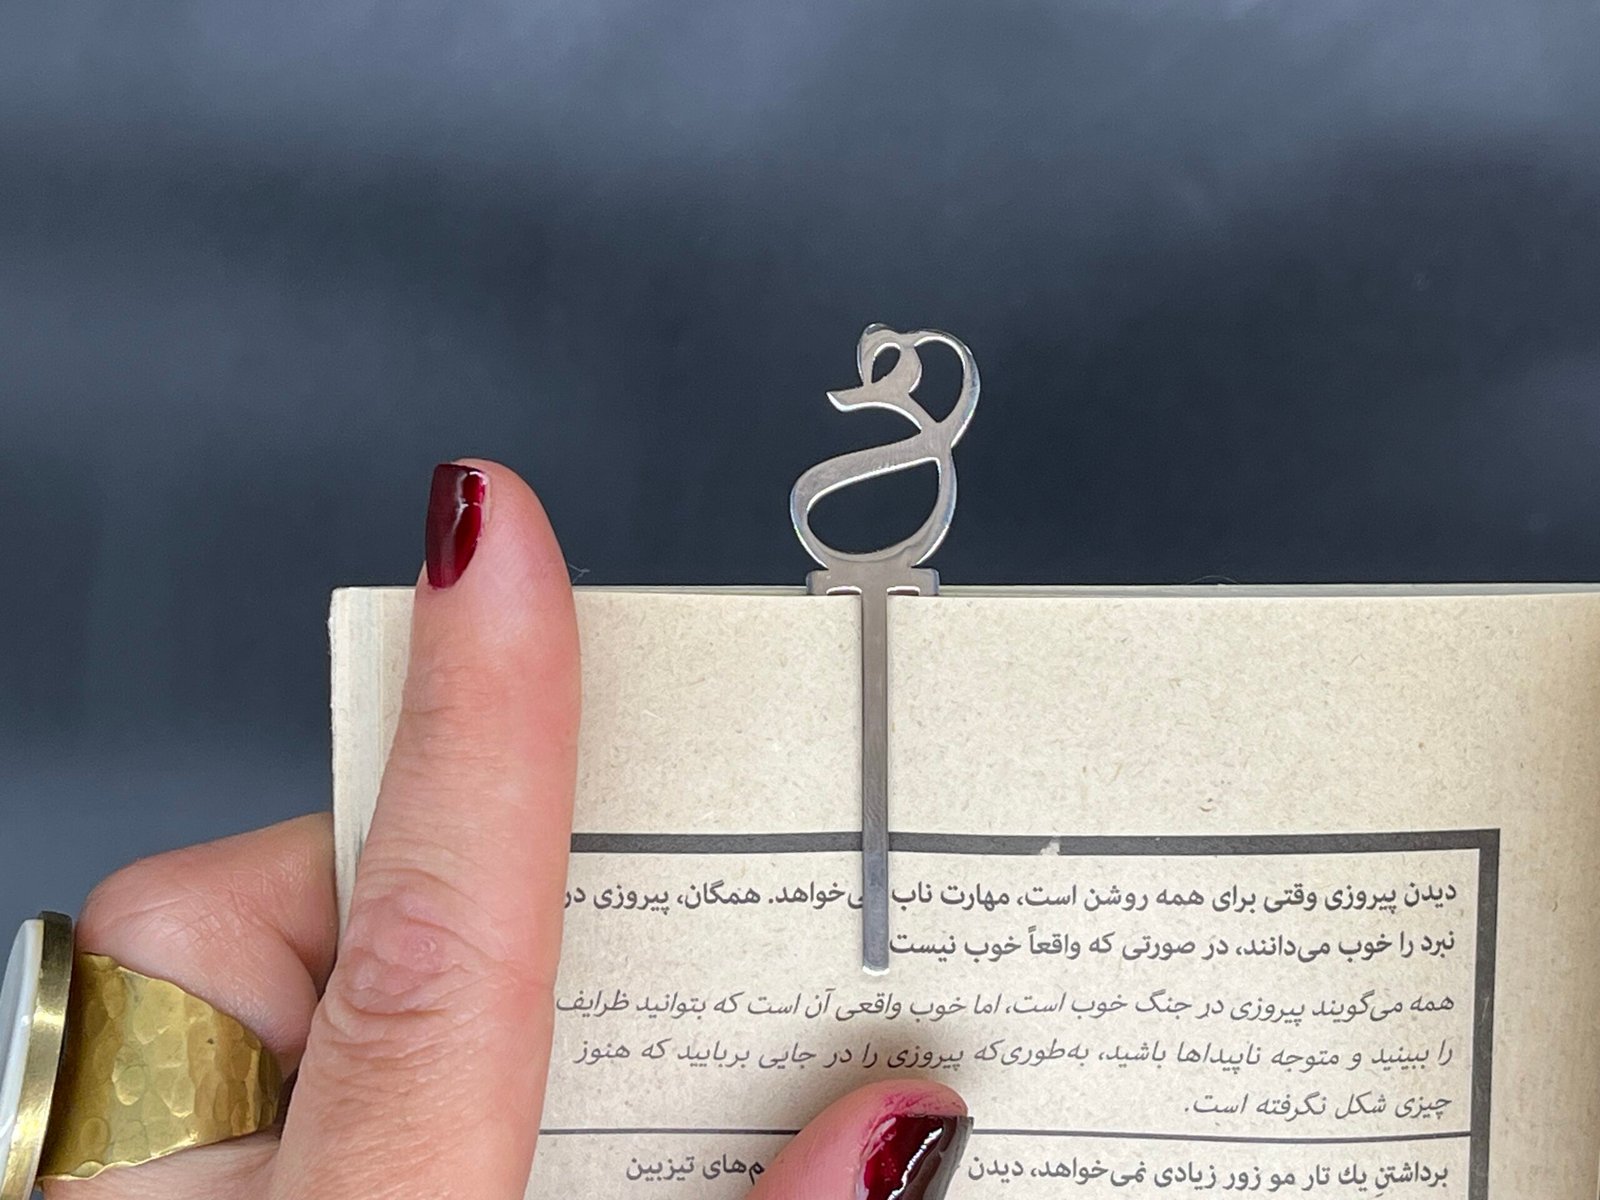 دیدن پیروزی وقتی برای همه روشن است، مهارت ناب می‌خواهد. همگان، پیروزی در
نبرد را خوب می‌دانند، در صورتی که واقعاً خوب نیست
همه می‌گویند پیروزی در جنگ خوب است، اما خوب واقعی آن است که بتوانید ظرایف
را ببینید و متوجه ناپیداها باشید، به‌طوری‌که پیروزی را در جایی بربایید که هنوز
چیزی شکل نگرفته است.
برداشتن یك تار مو زور زیادی نمی‌خواهد، دیدن تیزبین